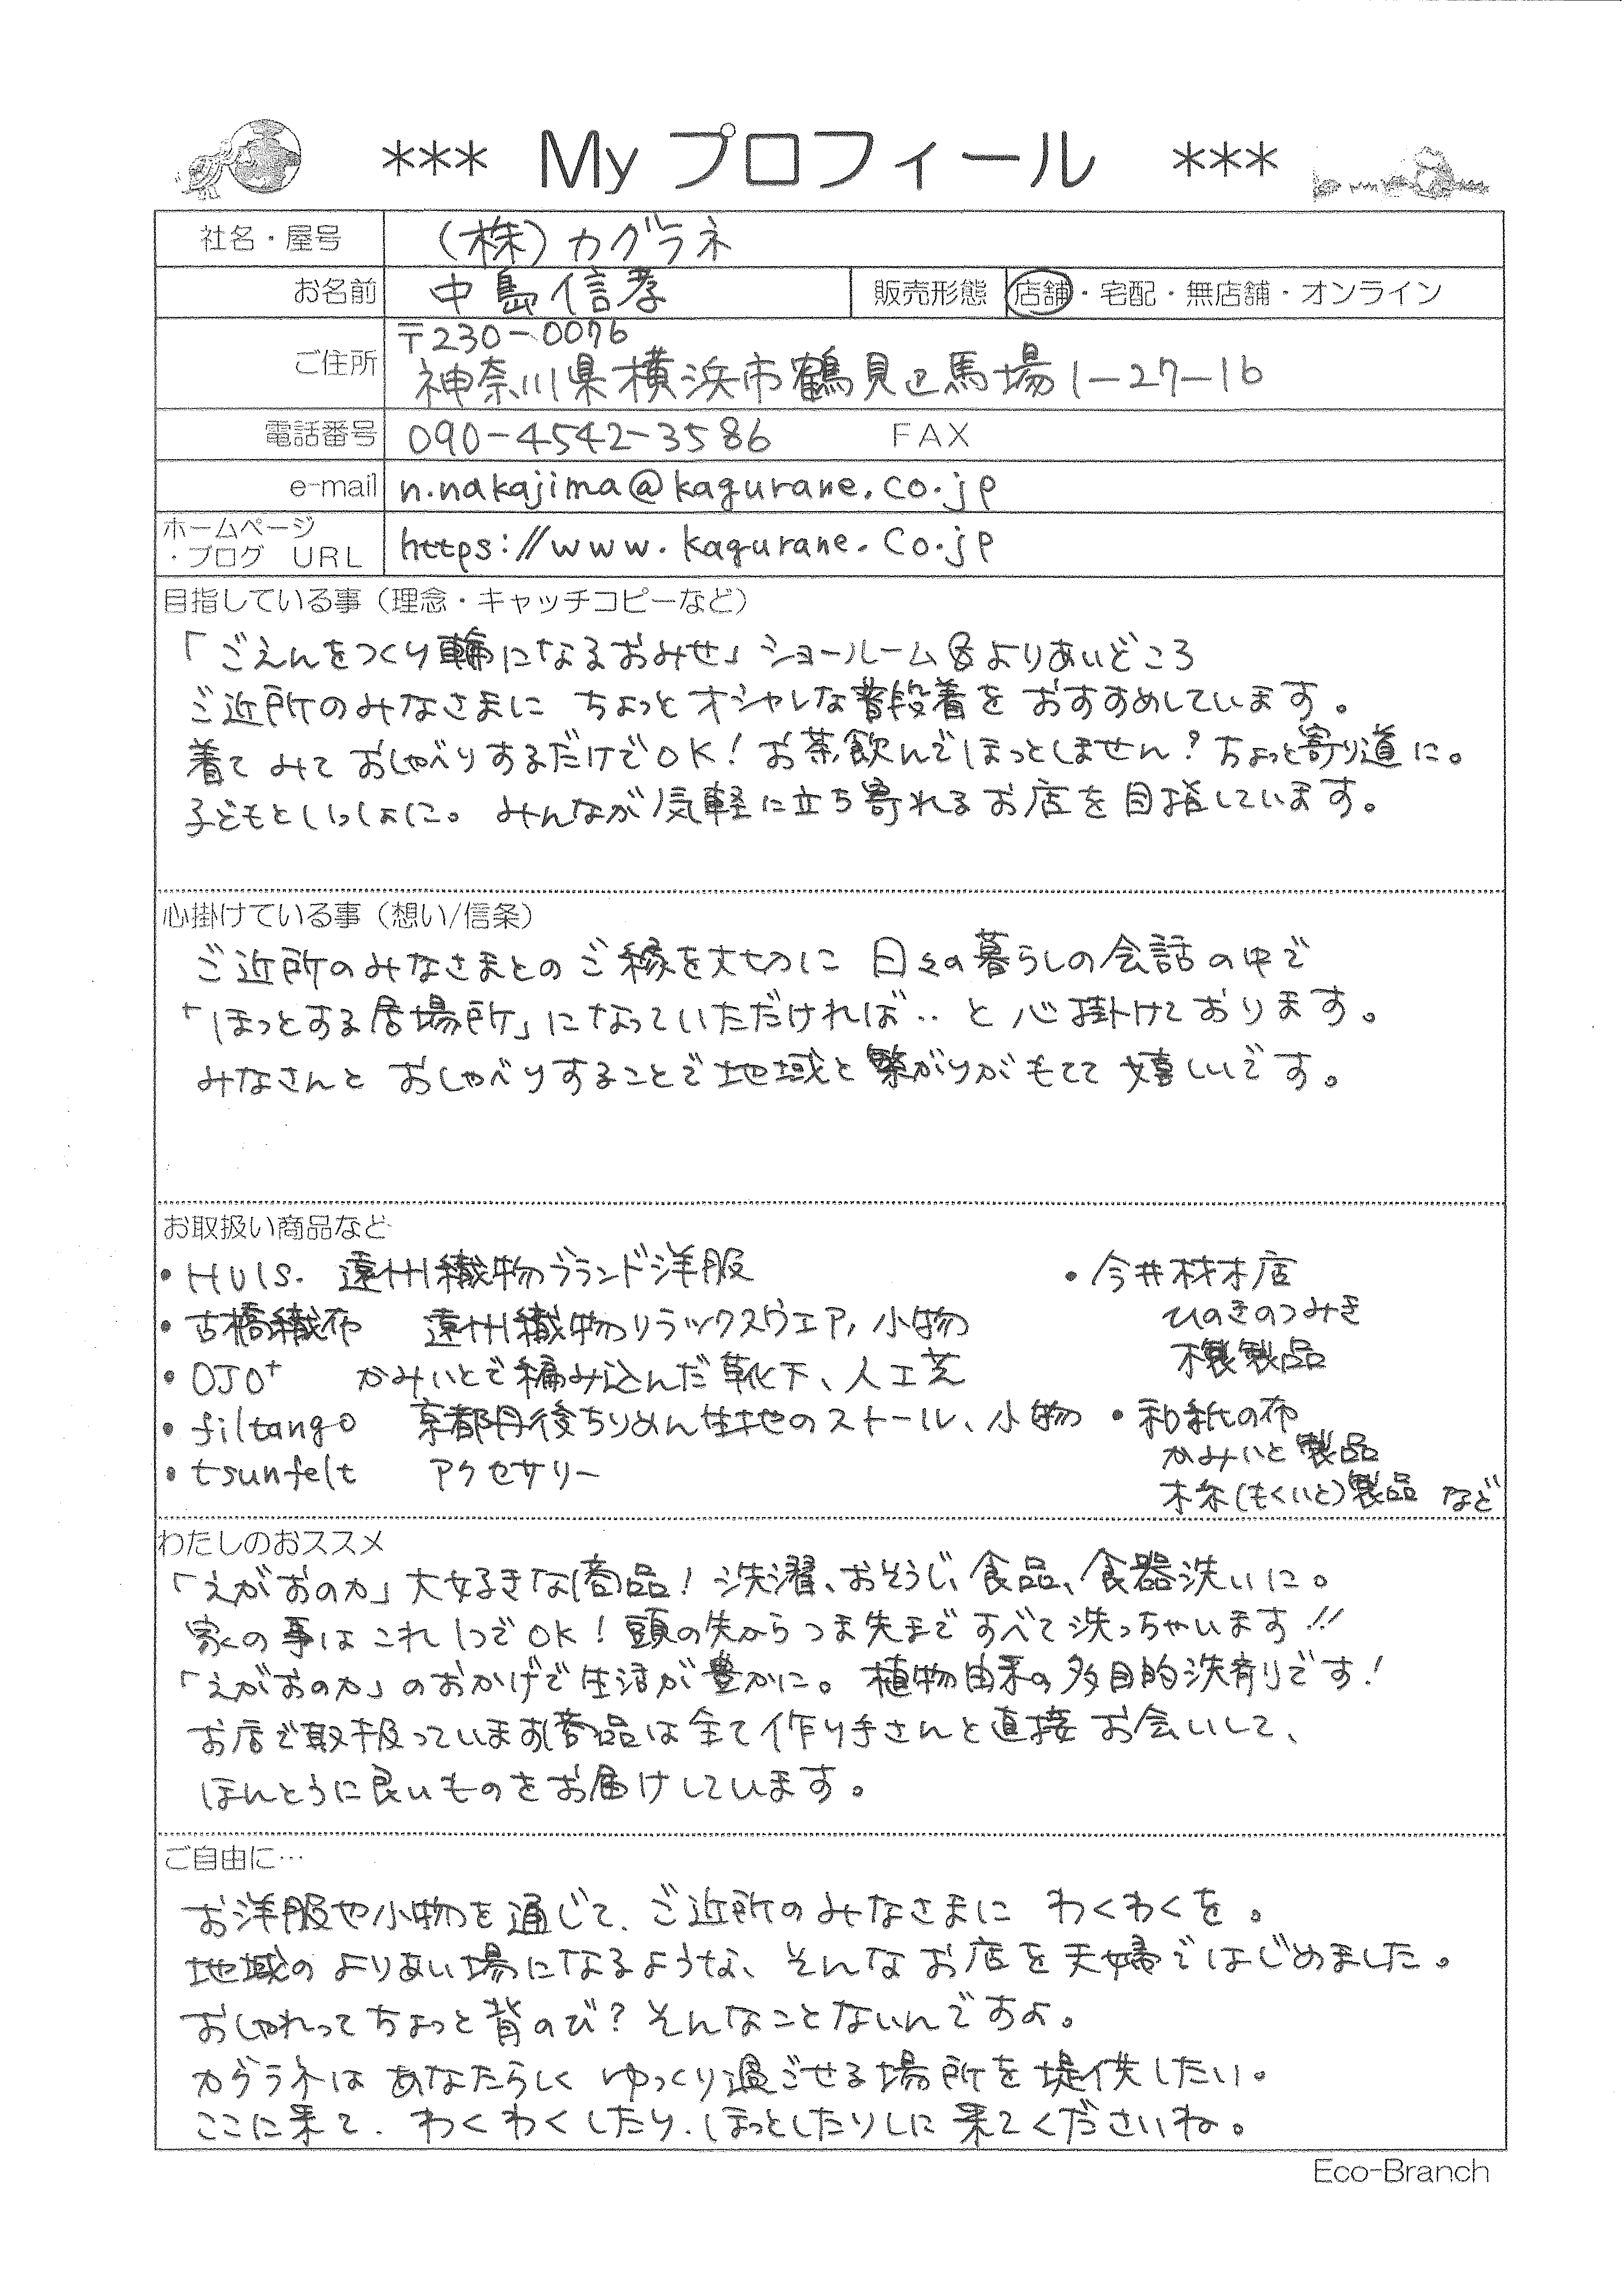 *** My プロフィール ***
社名・屋号 (株)カグラネ
お名前 中島信孝 販売形態 店舗・宅配・無店舗・オンライン
〒230-0076
ご住所 神奈川県横浜市鶴見区馬場1-27-16
電話番号 090-4542-3586 FAX
e-mail n.nakajima@kagurane.co.jp
ホームページ
・ブログ URL https://www.kagurane.Co.jp
目指している事(理念・キャッチコピーなど)
「ごえんをつくり輪になるおみせ」ショールーム&よりあいどころ
ご近所のみなさまに ちょっとオシャレな普段着を おすすめしています。
着て みて おしゃべりするだけでOK!お茶飲んでほっとしません?ちょっと寄り道に。
子どもといっしょに。みんなが気軽に立ち寄れるお店を目指しています。
心掛けている事(想い/信条)
ご近所のみなさまとのご縁を大切に 日々の暮らしの会話の中で
「ほっとする居場所」になっていただければ‥と心掛けております。
みなさんと おしゃべりすることで地域と繋がりがもてて嬉しいです。
お取扱い商品など
・HUIS. 遠州織物ブランド洋服
・古橋織布 遠州織物リラックスウエア, 小物
・OJO⁺ かみいとで編み込んだ靴下、人工芝
・filtango 京都丹後ちりめん生地のストール、小物
・tsunfelt アクセサリー
・今井材木店
ひのきのつみき
木製製品
・和紙の布
かみいと製品
木糸(もくいと)製品 など
わたしのおススメ
「えがおのカ」大好きな商品!洗濯、おそうじ、食品、食器洗いに。
家の事はこれ1つでOK!頭の先からつま先まですべて洗っちゃいます!!
「えがおのカ」のおかげで生活が豊かに。植物由来の多目的洗剤です!
お店で取扱っています商品は全て作り手さんと直接お会いして、
ほんとうに良いものをお届けしています。
ご自由に…
お洋服や小物を通じて、ご近所のみなさまに わくわくを。
地域のよりあい場になるような、そんなお店を夫婦ではじめました。
おしゃれってちょっと背のび?そんなことないんですよ。
カグラネは あなたらしく ゆっくり過ごせる場所を提供したい。
ここに来て、わくわくしたり、ほっとしたりしに来てくださいね。
Eco-Branch